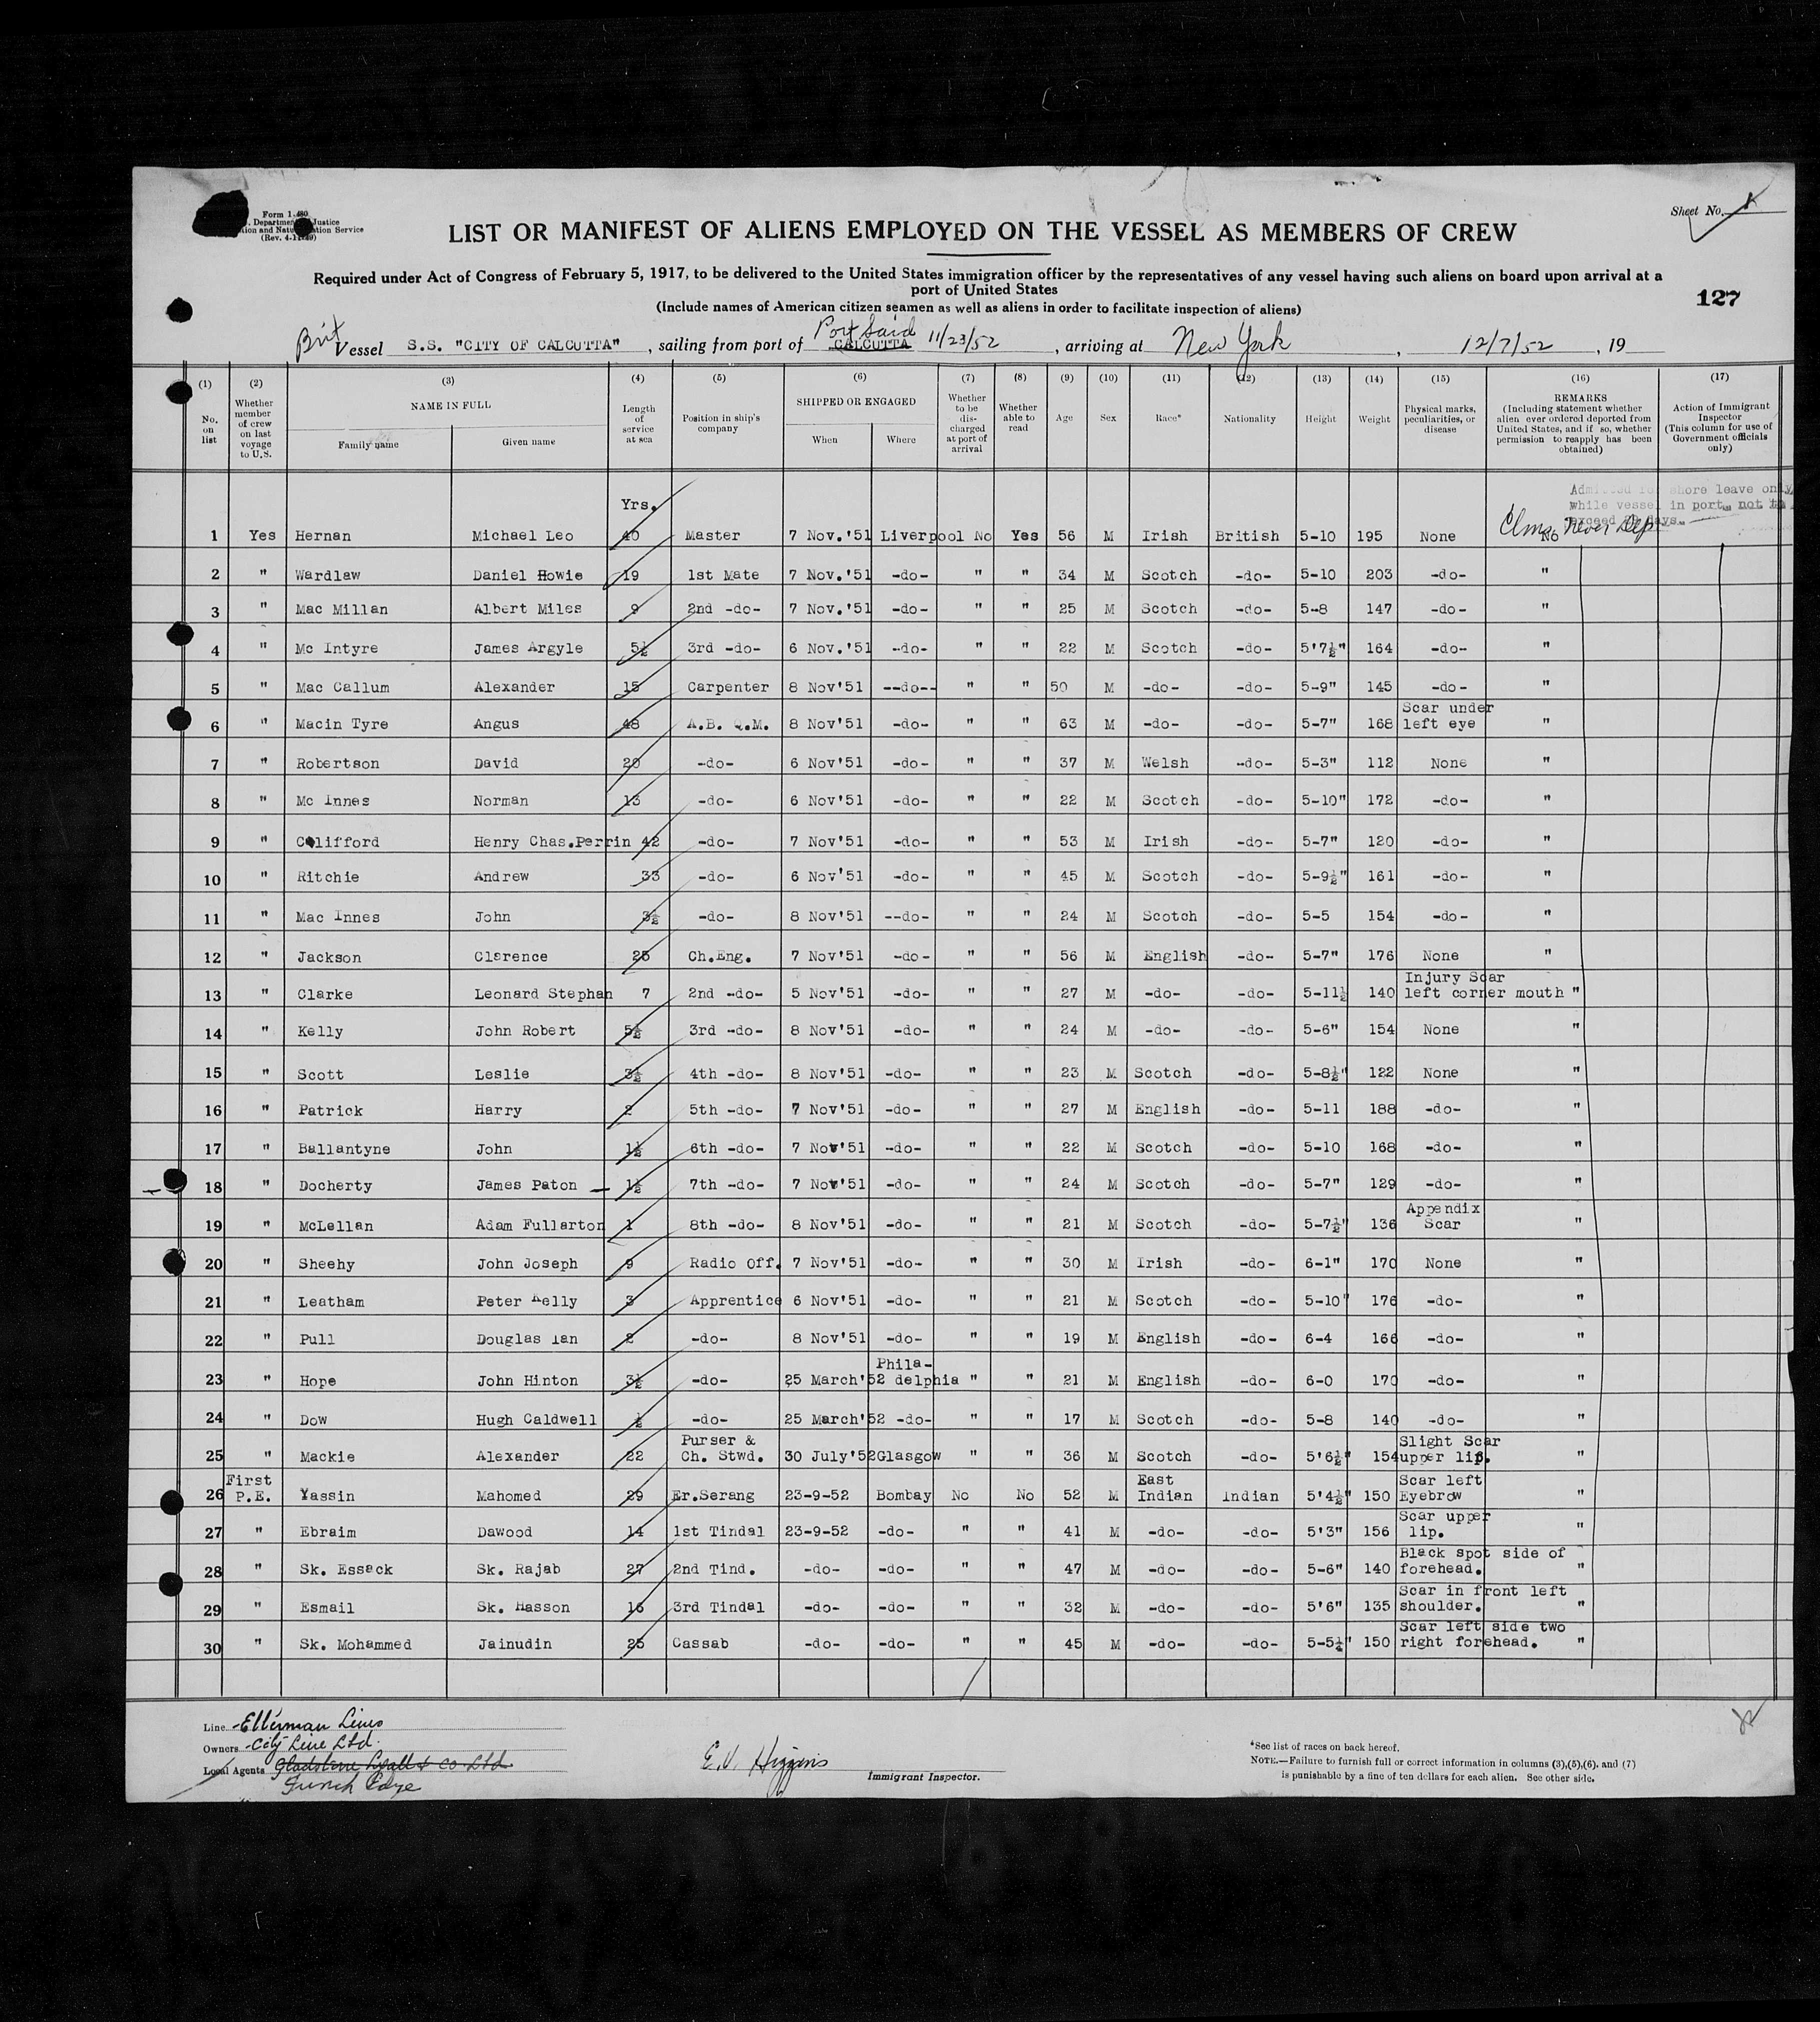 Form I-480
Department of Justice
Immigration and Naturalization Service
(Rev. 4-1-49)
Sheet No. 1
LIST OR MANIFEST OF ALIENS EMPLOYED ON THE VESSEL AS MEMBERS OF CREW
Required under Act of Congress of February 5, 1917, to be delivered to the United States immigration officer by the representatives of any vessel having such aliens on board upon arrival at a
port of United States
(Include names of American citizen seamen as well as aliens in order to facilitate inspection of aliens)
127
Brit Vessel S.S. "CITY OF CALCUTTA", sailing from port of CALCUTTA Port Said 11/23/52, arriving at New York, 12/7/52, 19
(1) (2) (3) (4) (5) (6) (7) (8) (9) (10) (11) (12) (13) (14) (15) (16) (17)
No. on list
Whether member of crew on last voyage to U.S.
NAME IN FULL
Family name Given name
Length of service at sea
Position in ship's company
SHIPPED OR ENGAGED
When Where
Whether to be discharged at port of arrival
Whether able to read
Age Sex Race* Nationality Height Weight
Physical marks, peculiarities, or disease
REMARKS (Including statement whether alien ever ordered deported from United States, and if so, whether permission to reapply has been obtained)
Action of Immigrant Inspector (This column for use of Government officials only)
Admitted for shore leave only
while vessel in port, not to
exceed 29 days.
Yrs.
Clms Never Dep
1 Yes Hernan Michael Leo 40 Master 7 Nov.'51 Liverpool No Yes 56 M Irish British 5-10 195 None No
2 " Wardlaw Daniel Howie 19 1st Mate 7 Nov.'51 -do- " " 34 M Scotch -do- 5-10 203 -do- "
3 " Mac Millan Albert Miles 9 2nd -do- 7 Nov.'51 -do- " " 25 M Scotch -do- 5-8 147 -do- "
4 " Mc Intyre James Argyle 5½ 3rd -do- 6 Nov.'51 -do- " " 22 M Scotch -do- 5'7½" 164 -do- "
5 " Mac Callum Alexander 15 Carpenter 8 Nov'51 --do-- " " 50 M -do- -do- 5-9" 145 -do- "
6 " Macin Tyre Angus 48 A.B. Q.M. 8 Nov'51 -do- " " 63 M -do- -do- 5-7" 168 Scar under left eye "
7 " Robertson David 20 -do- 6 Nov'51 -do- " " 37 M Welsh -do- 5-3" 112 None "
8 " Mc Innes Norman 13 -do- 6 Nov'51 -do- " " 22 M Scotch -do- 5-10" 172 -do- "
9 " Clifford Henry Chas.Perrin 42 -do- 7 Nov'51 -do- " " 53 M Irish -do- 5-7" 120 -do- "
10 " Ritchie Andrew 33 -do- 6 Nov'51 -do- " " 45 M Scotch -do- 5-9½" 161 -do- "
11 " Mac Innes John 3½ -do- 8 Nov'51 --do- " " 24 M Scotch -do- 5-5 154 -do- "
12 " Jackson Clarence 25 Ch.Eng. 7 Nov'51 -do- " " 56 M English -do- 5-7" 176 None "
13 " Clarke Leonard Stephan 7 2nd -do- 5 Nov'51 -do- " " 27 M -do- -do- 5-11½ 140 Injury Scar left corner mouth "
14 " Kelly John Robert 5½ 3rd -do- 8 Nov'51 -do- " " 24 M -do- -do- 5-6" 154 None "
15 " Scott Leslie 3½ 4th -do- 8 Nov'51 -do- " " 23 M Scotch -do- 5-8½" 122 None "
16 " Patrick Harry 2 5th -do- 7 Nov'51 -do- " " 27 M English -do- 5-11 188 -do- "
17 " Ballantyne John 1½ 6th -do- 7 Nov'51 -do- " " 22 M Scotch -do- 5-10 168 -do- "
18 " Docherty James Paton 1½ 7th -do- 7 Nov'51 -do- " " 24 M Scotch -do- 5-7" 129 -do- "
19 " McLellan Adam Fullarton 1 8th -do- 8 Nov'51 -do- " " 21 M Scotch -do- 5-7½" 136 Appendix Scar "
20 " Sheehy John Joseph 9 Radio Off. 7 Nov'51 -do- " " 30 M Irish -do- 6-1" 170 None "
21 " Leatham Peter Kelly 3 Apprentice 6 Nov'51 -do- " " 21 M Scotch -do- 5-10" 176 -do- "
22 " Pull Douglas Ian 2 -do- 8 Nov'51 -do- " " 19 M English -do- 6-4 166 -do- "
23 " Hope John Hinton 3½ -do- 25 March'52 Phila-delphia " " 21 M English -do- 6-0 170 -do- "
24 " Dow Hugh Caldwell ½ -do- 25 March'52 -do- " " 17 M Scotch -do- 5-8 140 -do- "
25 " Mackie Alexander 22 Purser & Ch. Stwd. 30 July'52 Glasgow " " 36 M Scotch -do- 5'6½" 154 Slight Scar upper lip. "
26 First P.E. Yassin Mahomed 29 Er.Serang 23-9-52 Bombay No No 52 M East Indian Indian 5'4½" 150 Scar left Eyebrow "
27 " Ebraim Dawood 14 1st Tindal 23-9-52 -do- " " 41 M -do- -do- 5'3" 156 Scar upper lip. "
28 " Sk. Essack Sk. Rajab 27 2nd Tind. -do- -do- " " 47 M -do- -do- 5-6" 140 Black spot side of forehead. "
29 " Esmail Sk. Hasson 16 3rd Tindal -do- -do- " " 32 M -do- -do- 5'6" 135 Scar in front left shoulder. "
30 " Sk. Mohammed Jainudin 25 Cassab -do- -do- " " 45 M -do- -do- 5-5¼" 150 Scar left side two right forehead. "
Line Ellerman Lines
Owners City Line Ltd.
Local Agents Gladstone Lyall & Co Ltd
E.V. Higgins
Immigrant Inspector.
*See list of races on back hereof.
NOTE.—Failure to furnish full or correct information in columns (3),(5),(6), and (7)
is punishable by a fine of ten dollars for each alien. See other side.